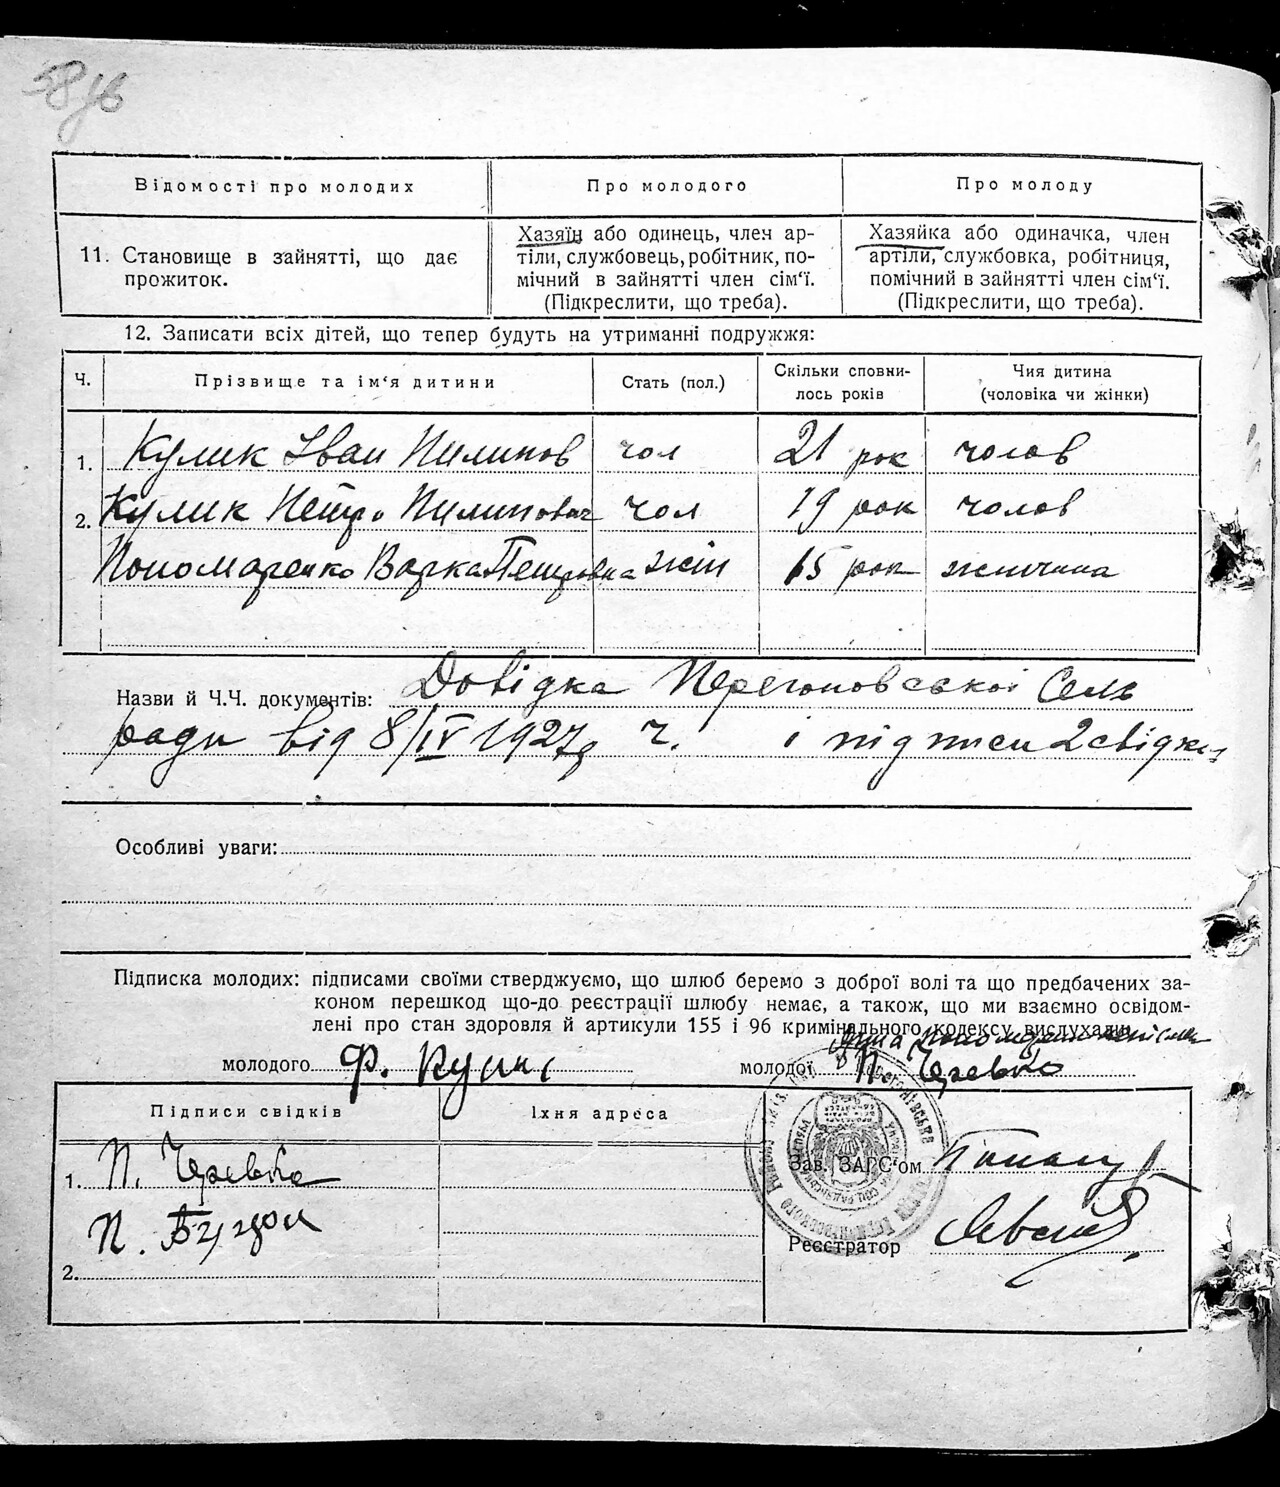 58 зв
Відомості про молодих
Про молодого
Про молоду
11. Становище в зайнятті, що дає
прожиток.
Хазяїн або одинець, член ар-
тіли, службовець, робітник, по-
мічний в зайнятті член сім'ї.
(Підкреслити, що треба).
Хазяйка або одиначка, член
артіли, службовка, робітниця,
помічний в зайнятті член сім'ї.
(Підкреслити, що треба).
12. Записати всіх дітей, що тепер будуть на утриманні подружжя:
Ч.
Прізвище та ім'я дитини
Стать (пол.)
Скільки сповни-
лось років
Чия дитина
(чоловіка чи жінки)
1. Кулик Іван Пилипов чол 21 рок чолов
2. Кулик Петро Пилипович чол 19 рок чолов
Пономаренко Варка Петровна жін 15 рок жінчина
Назви й Ч.Ч. документів: Довідка Перегоновської Сель
ради від 8/IV 1927р ч. і підписи 2 свідків
Особливі уваги:
Підписка молодих: підписами своїми стверджуємо, що шлюб беремо з доброї волі та що предбачених за-
коном перешкод що-до реєстрації шлюбу немає, а також, що ми взаємно освідом-
лені про стан здоровля й артикули 155 і 96 кримінального кодексу вислухали
молодого Ф. Кулик
молодої П. Черевко
Підписи свідків
Їхня адреса
1. П. Черевко
П.
2.
Зав. ЗАГС'ом
Реєстратор